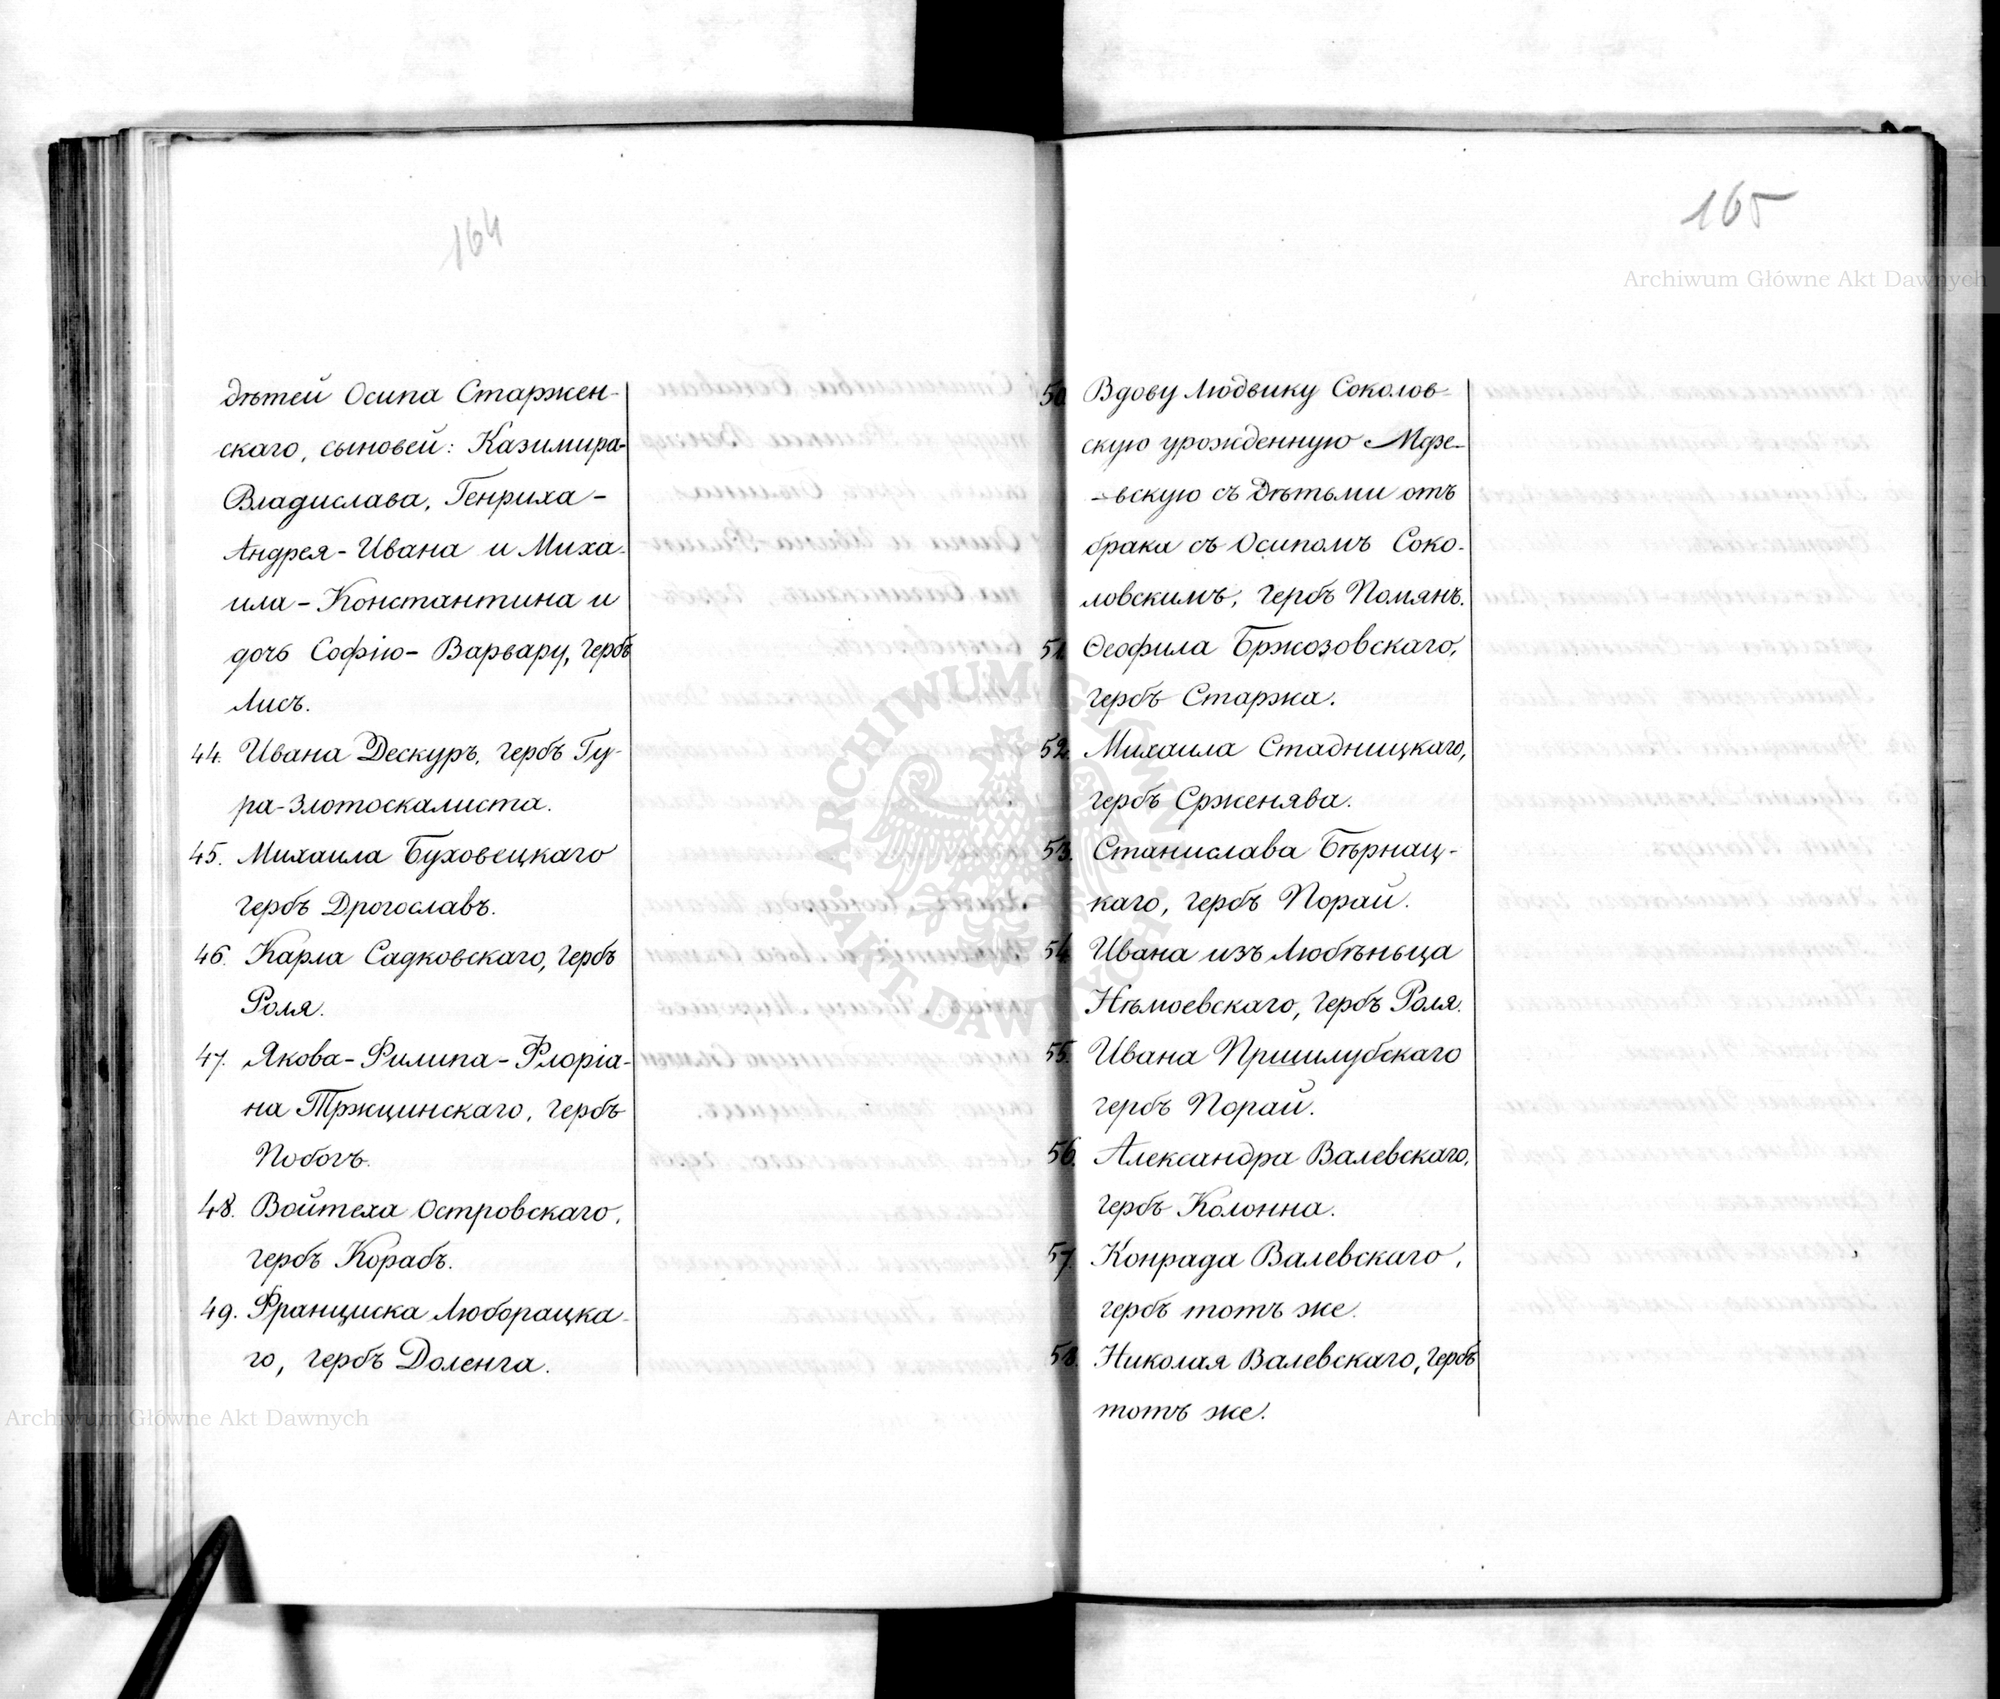 164
дѣтей Осипа Старжен-
скаго, сыновей: Казимира-
Владислава, Генриха-
Андрея-Ивана и Миха-
ила-Константина и
дочь Софію-Варвару, гербъ
Лисъ.
44. Ивана Дескуръ, гербъ Гу-
ра-Злотоскалиста.
45. Михаила Буховецкаго
гербъ Дрогославъ.
46. Карла Садковскаго, гербъ
Роля.
47. Якова-Филипа-Флоріа-
на Тржцинскаго, гербъ
Побогъ.
48. Войтеха Островскаго,
гербъ Корабъ.
49. Франциска Люборацка-
го, гербъ Доленга.
165
Archiwum Główne Akt Dawnych
50. Вдову Людвику Соколов-
скую урожденную
-вскую съ дѣтьми отъ
брака съ Осипомъ Соко-
ловскимъ, гербъ Помянъ.
51. Ѳеофила Бржозовскаго,
гербъ Старжа.
52. Михаила Стадницкаго,
гербъ Срженява.
53. Станислава Бѣрнац-
каго, гербъ Порай.
54. Ивана изъ Любѣньца
Нѣмоевскаго, гербъ Роля.
55. Ивана Пршилубскаго
гербъ Порай.
56. Александра Валевскаго,
гербъ Колонна.
57. Конрада Валевскаго,
гербъ тотъ же.
58. Николая Валевскаго, гербъ
тотъ же.
ARCHIWUM GŁÓWNE AKT DAWNYCH
Archiwum Główne Akt Dawnych